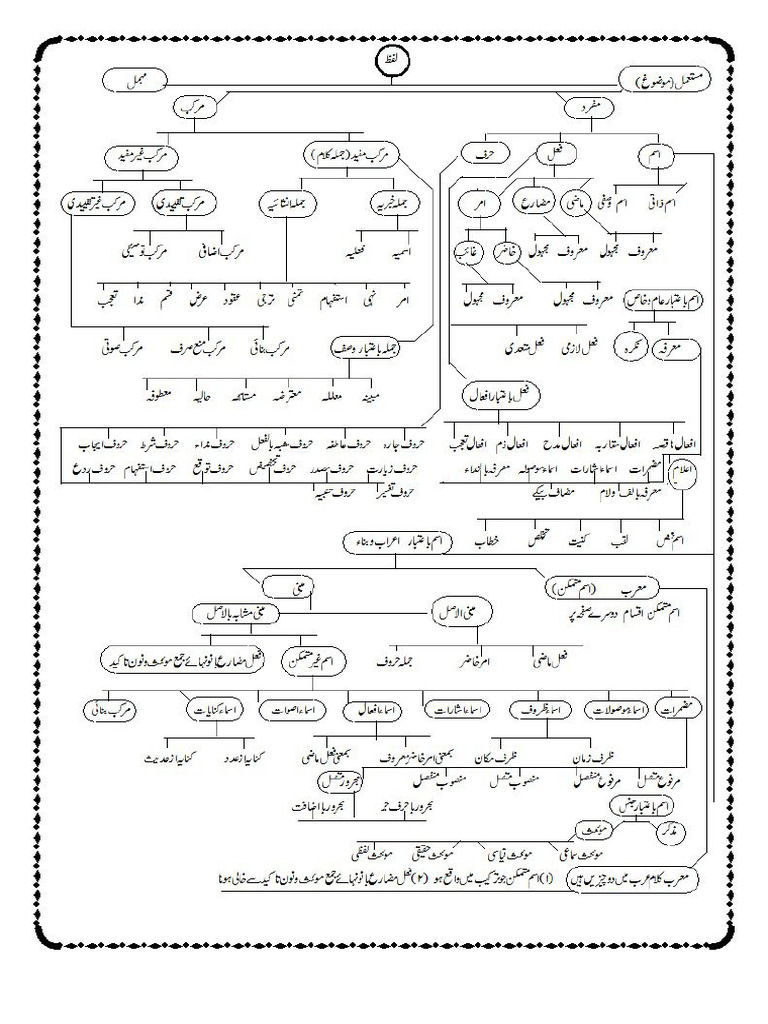 لفظ
مستعمل (موضوع) مہمل
مفرد مرکب
اسم فعل حرف مرکب مفید (جملہ کلام) مرکب غیر مفید
اسم ذاتی اسم وصفی ماضی مضارع امر جملہ خبریہ جملہ انشائیہ مرکب تقییدی مرکب غیر تقییدی
معروف مجہول معروف مجہول حاضر غائب اسمیہ فعلیہ مرکب اضافی مرکب توصیفی
معروف مجہول معروف مجہول امر نہی استفہام تمنی ترجی عقود عرض قسم ندا تعجب
اسم باعتبار عام و خاص
معرفہ نکرہ فعل لازمی فعل متعدی جملہ باعتبار وصف مرکب بنائی مرکب منع صرف مرکب صوتی
فعل باعتبار افعال مبینہ معللہ معترضہ مستانفہ حالیہ معطوفہ
افعال ناقصہ افعال مقاربہ افعال مدح افعال ذم افعال تعجب حروف جارہ حروف عاطفہ حروف مشبہ بالفعل حروف نداء حروف شرط حروف ایجاب
اعلام مضمرات اسماء اشارات اسماء موصولہ معرفہ بانداء حروف زیارت حروف مصدر حروف تحضیض حروف توقع حروف استفہام حروف ردع
معرفہ بالف ولام مضاف بیکے حروف تفسیر حروف تنبیہ
اسم محض لقب کنیت تخلص خطاب
اسم باعتبار اعراب و بناء
معرب (اسم متمکن) مبنی
اسم متمکن اقسام دوسرے صفحہ پر مبنی الاصل مبنی مشابہ بالاصل
فعل ماضی امر حاضر جملہ حروف اسم غیر متمکن فعل مضارع بانونہائے جمع مونث و نون تاکید
مضمرات اسماء موصولات اسماء ظروف اسماء اشارات اسماء افعال اسماء اصوات اسماء کنایات مرکب بنائی
ظرف زمان ظرف مکان بمعنی امر حاضر معروف بمعنی فعل ماضی کنایہ از عدد کنایہ از حدیث
مرفوع متصل مرفوع منفصل منصوب متصل منصوب منفصل مجرور متصل
اسم باعتبار جنس مجرور باحرف جر مجرور با اضافت
مذکر مونث
مونث سماعی مونث قیاسی مونث حقیقی مونث لفظی
معرب کلام عرب میں دو چیزیں ہیں (۱) اسم متمکن جو ترکیب میں واقع ہو (۲) فعل مضارع بانونہائے جمع مونث و نون تاکید سے خالی ہونا